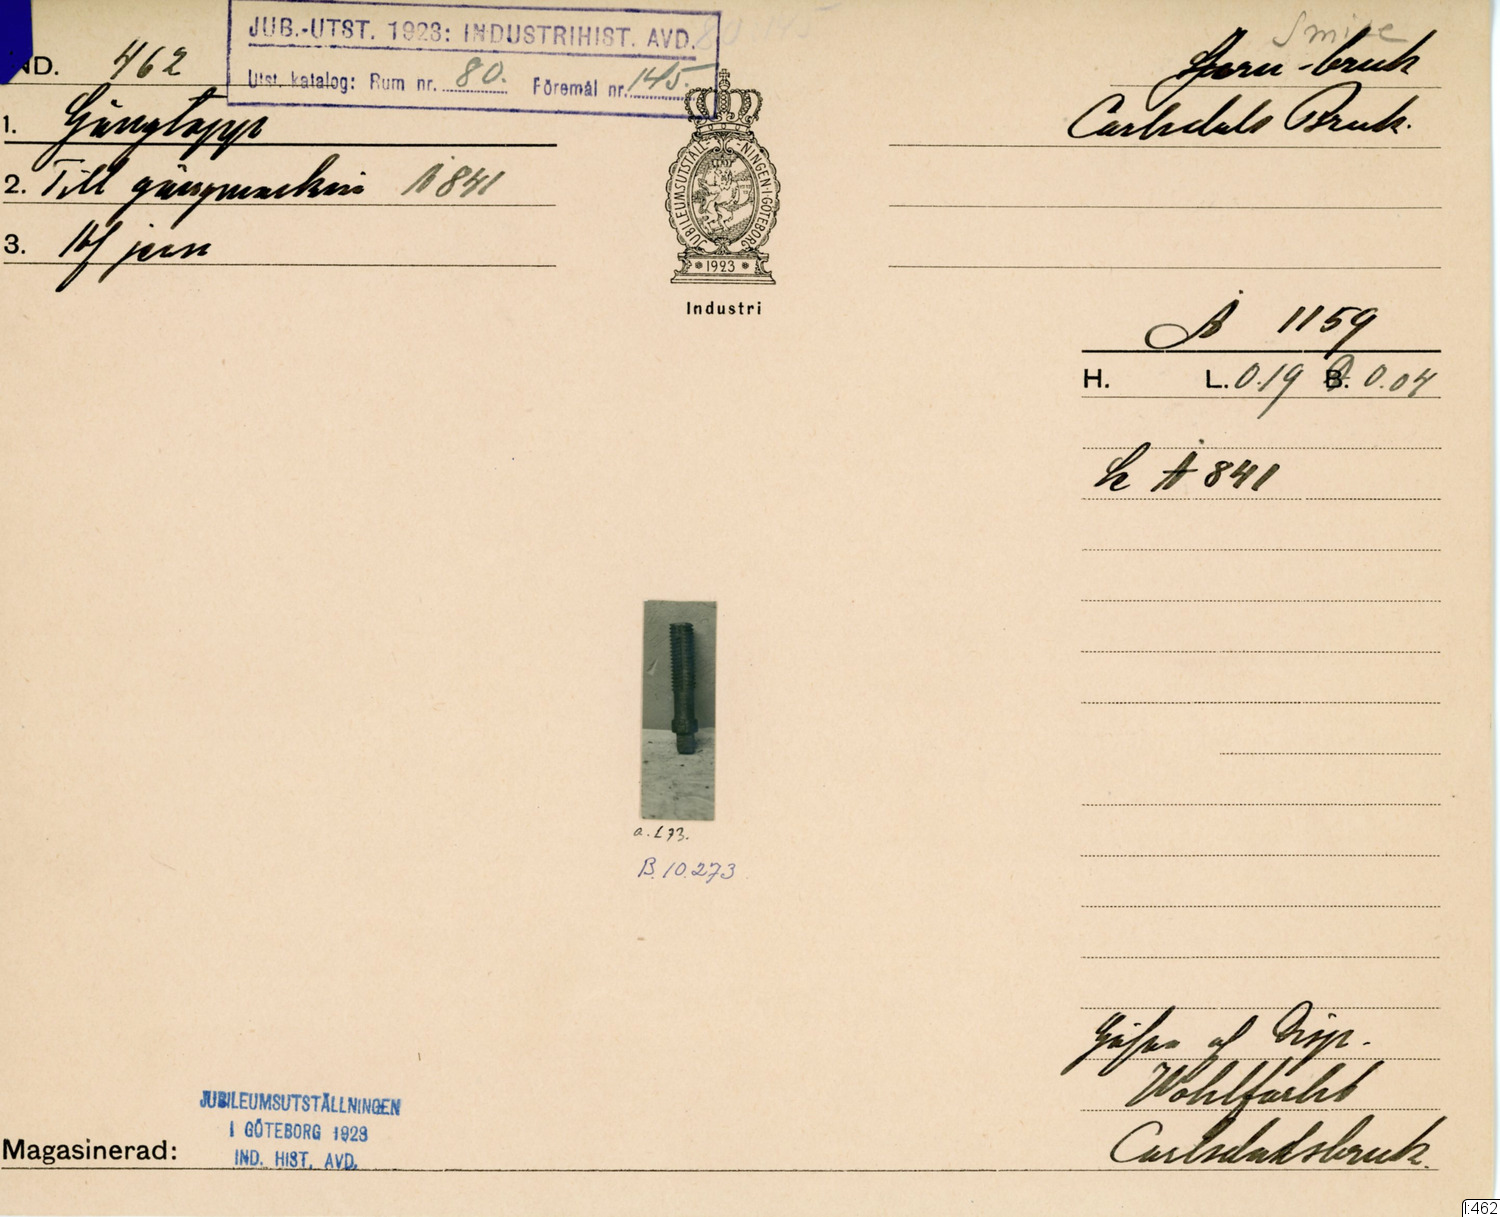 JUB.-UTST. 1923: INDUSTRIHIST. AVD.
Utst. katalog: Rum nr. 80. Föremål nr. 145.
IND. 462
1. Gängtapp
2. Till gängmaskin Å 841
3. Af jern
JUBILEUMSUTSTÄLL-NINGEN·I·GÖTEBORG
1923
Industri
Smide
Jern-bruk
Carlsdals Bruk.
Å 1159
H. L. 0.19 B. 0.04
Å 841
a.L73.
B.10.273
Gåfva af Disp.
Wohlfarht
Carlsdalsbruk.
JUBILEUMSUTSTÄLLNINGEN
I GÖTEBORG 1923
IND. HIST. AVD.
Magasinerad:
I:462